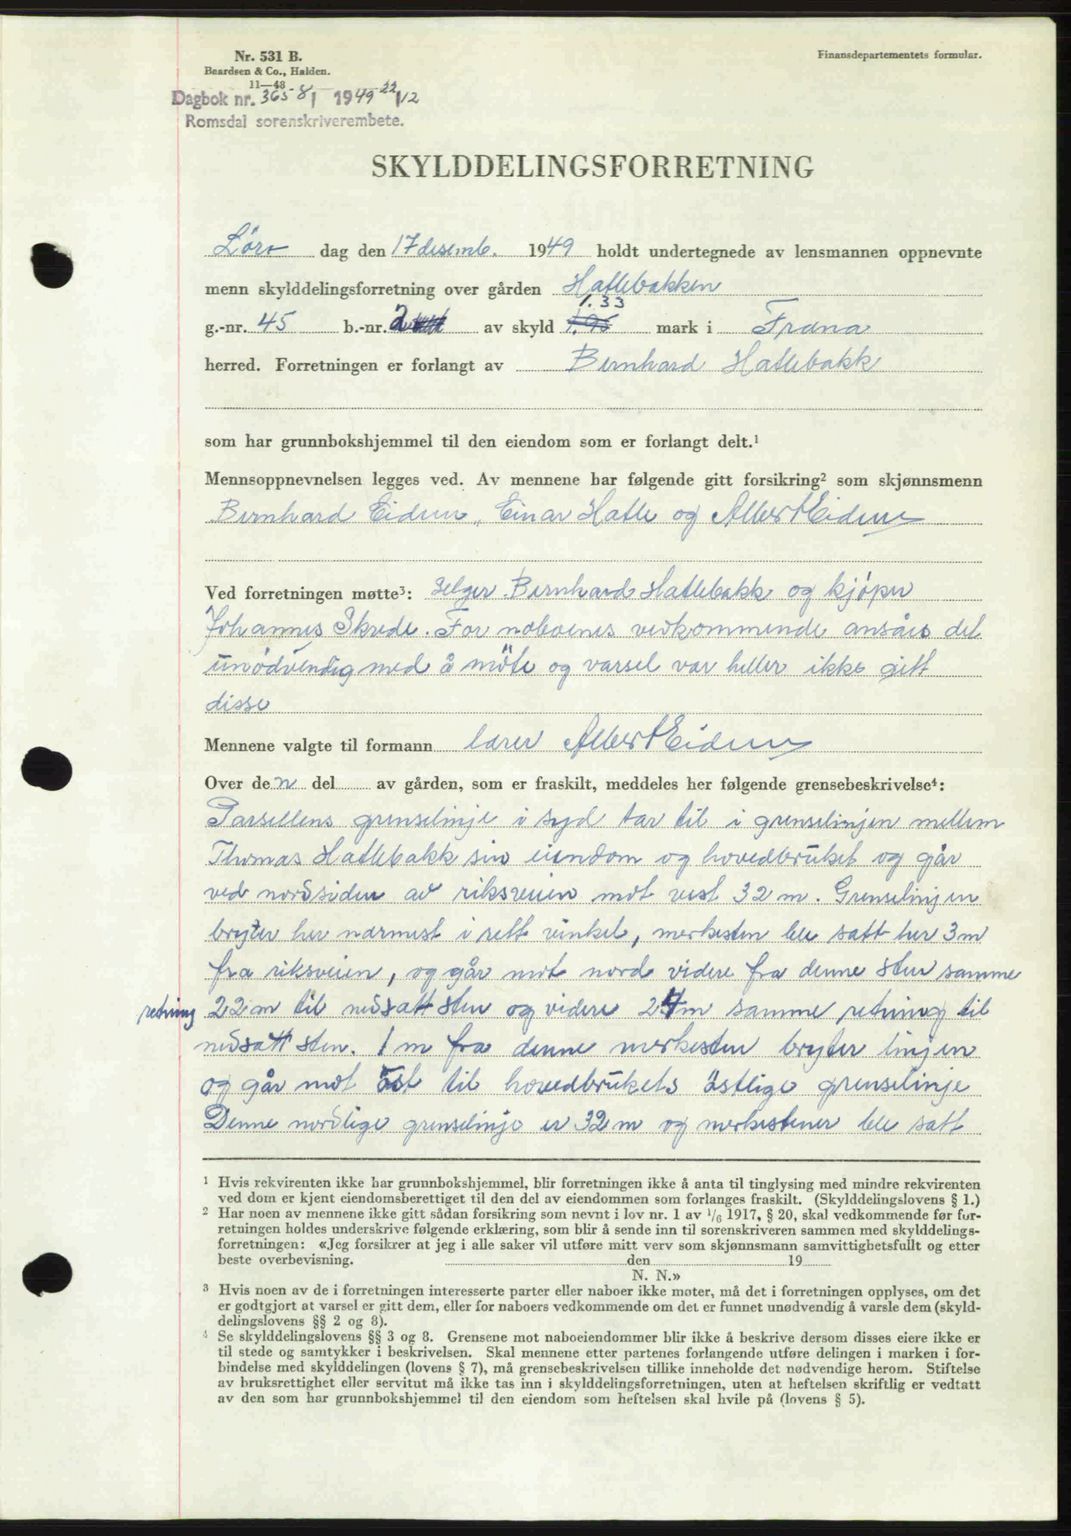 Nr. 531 B.
Baardsen & Co., Halden.
11—48
Finansdepartementets formular.
Dagbok nr. 3658 / 1949 22/12
Romsdal sorenskriverembete.
SKYLDDELINGSFORRETNING
Lør dag den 17 desemb. 1949 holdt undertegnede av lensmannen oppnevnte
menn skylddelingsforretning over gården Hatlebakken
1.33
g.-nr. 45 b.-nr. 2 av skyld 1.95 mark i Fræna
herred. Forretningen er forlangt av Bernhard Hatlebakk
som har grunnbokshjemmel til den eiendom som er forlangt delt.¹
Mennsoppnevnelsen legges ved. Av mennene har følgende gitt forsikring² som skjønnsmenn
Bernhard Eidem, Einar Hatle og Albert Eidem
Ved forretningen møtte³: selger Bernhard Hatlebakk og kjöper
Johannes Skrede. For naboenes vedkommende ansåes det
unödvendig med å möte og varsel var heller ikke gitt
disse
Mennene valgte til formann lærer Albert Eidem
Over den del av gården, som er fraskilt, meddeles her følgende grensebeskrivelse⁴:
Parsellens grenselinje i syd tar til i grenselinjen mellem
Thomas Hatlebakk sin eiendom og hovedbruket og går
ved nordsiden av riksveien mot vest 32 m. Grenselinjen
bryter her nærmest i rett vinkel, merkesten ble satt her 3 m
fra riksveien, og går mot nord videre fra denne sten samme
retning 22 m til nedsatt sten og videre 27 m samme retning til
nedsatt sten. 1 m fra denne merkesten bryter linjen
og går mot öst til hovedbrukets östlige grenselinje
Denne nordlige grenselinje er 32 m og merkestener ble satt
¹ Hvis rekvirenten ikke har grunnbokshjemmel, blir forretningen ikke å anta til tinglysing med mindre rekvirenten
ved dom er kjent eiendomsberettiget til den del av eiendommen som forlanges fraskilt. (Skylddelingslovens § 1.)
² Har noen av mennene ikke gitt sådan forsikring som nevnt i lov nr. 1 av 1/6 1917, § 20, skal vedkommende før for-
retningen holdes underskrive følgende erklæring, som blir å sende inn til sorenskriveren sammen med skylddelings-
forretningen: «Jeg forsikrer at jeg i alle saker vil utføre mitt verv som skjønnsmann samvittighetsfullt og etter
beste overbevisning. den 19
N. N.»
³ Hvis noen av de i forretningen interesserte parter eller naboer ikke møter, må det i forretningen opplyses, om det
er godtgjort at varsel er gitt dem, eller for naboers vedkommende om det er funnet unødvendig å varsle dem (skyld-
delingslovens §§ 2 og 8).
⁴ Se skylddelingslovens §§ 3 og 8. Grensene mot naboeiendommer blir ikke å beskrive dersom disses eiere ikke er
til stede og samtykker i beskrivelsen. Skal mennene etter partenes forlangende utføre delingen i marken i for-
bindelse med skylddelingen (lovens § 7), må grensebeskrivelsen tillike inneholde det nødvendige herom. Stiftelse
av bruksrettighet eller servitut må ikke tas inn i skylddelingsforretningen, uten at heftelsen skriftlig er vedtatt
av den som har grunnbokshjemmel til den eiendom som heftelsen skal hvile på (lovens § 5).